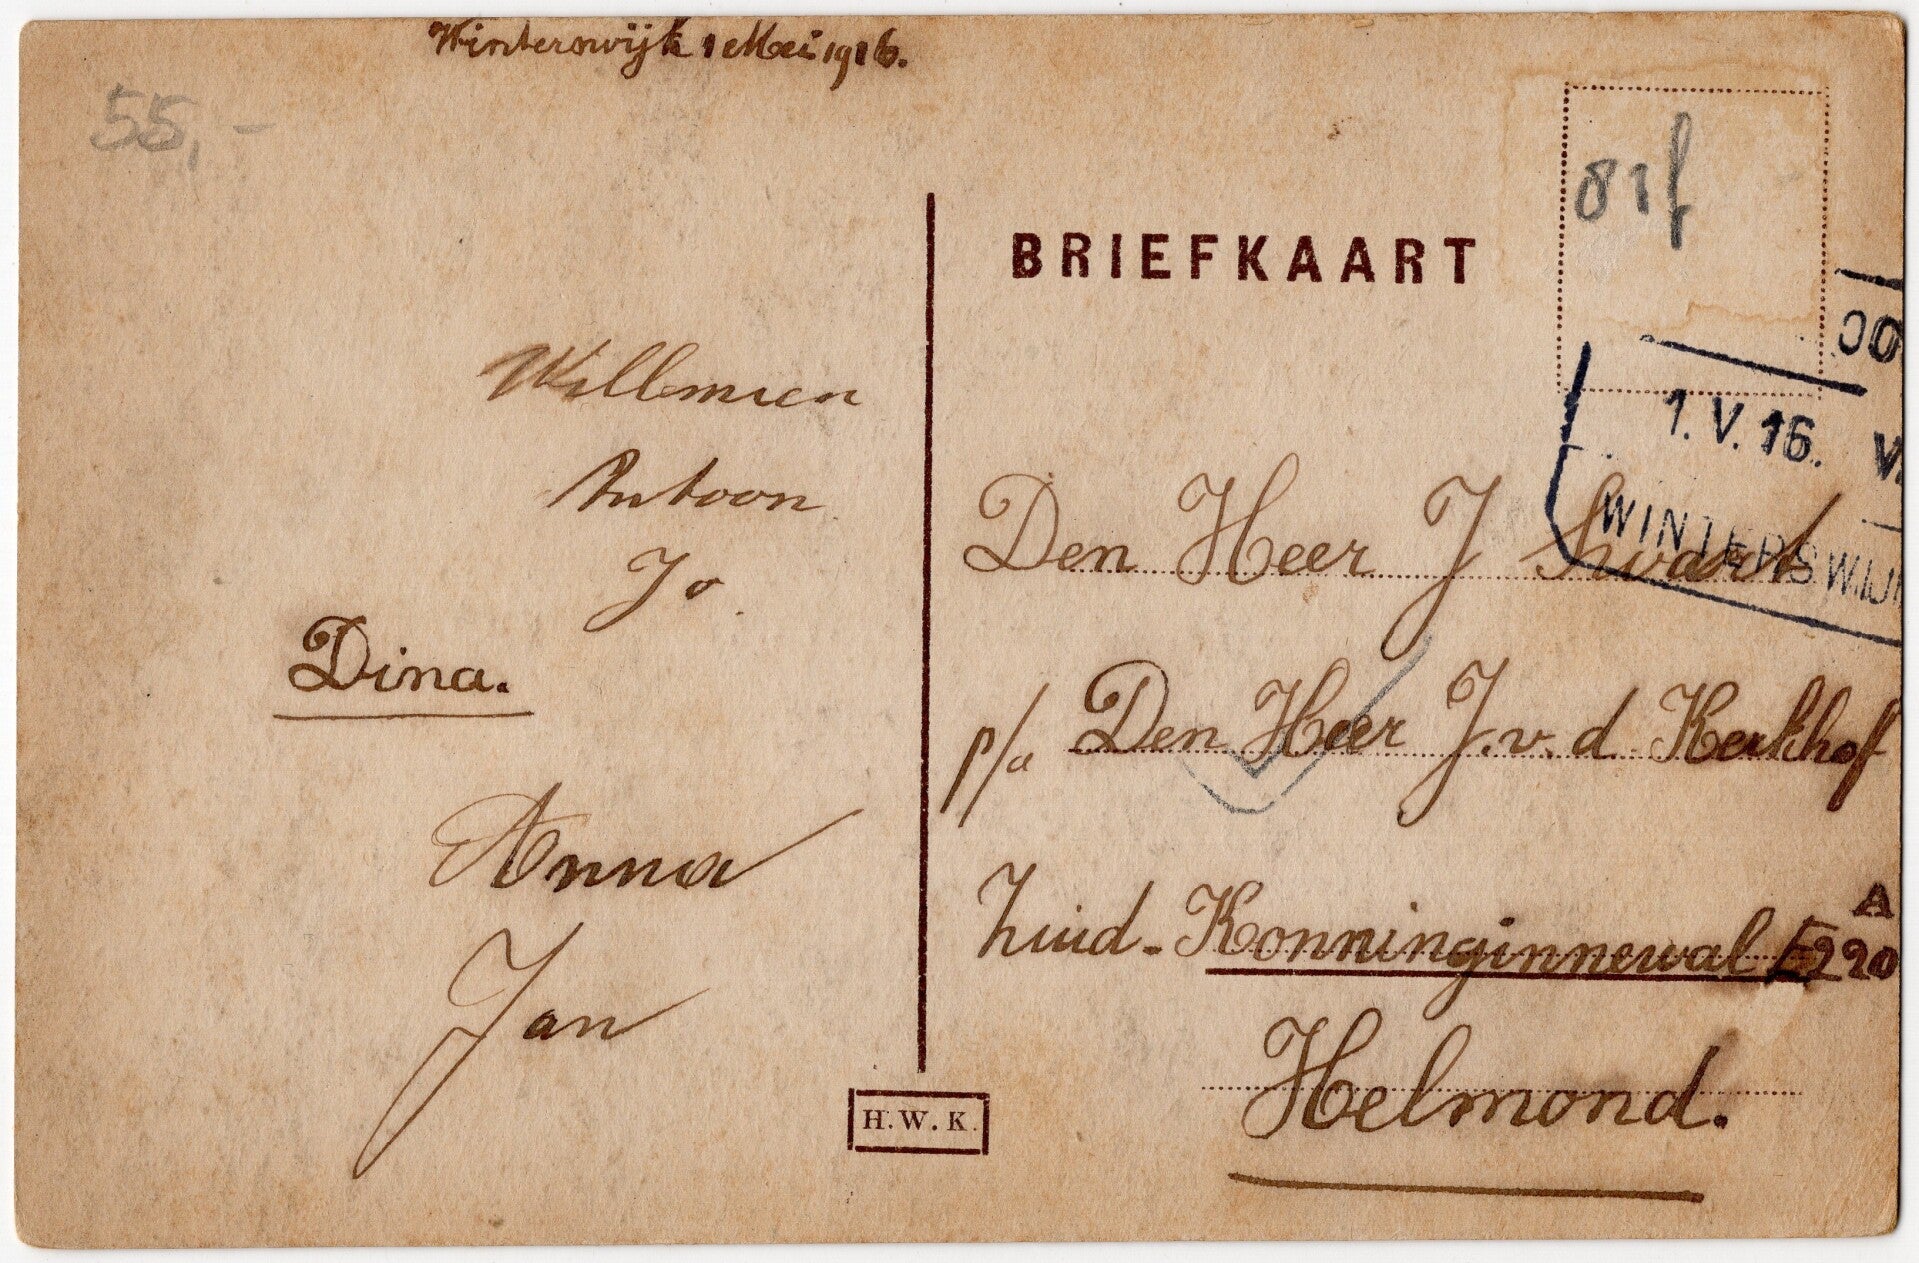 Winterswijk 1 Mei 1916.
55,-
Willemien
Antoon
Jo
Dina.
Anna
Jan
H.W.K.
BRIEFKAART
81f
1.V.16. V.
WINTERSWIJK
Den Heer J Swart
p/a Den Heer J.v.d. Kerkhof
Zuid-Konninginnewal E220 A
Helmond.